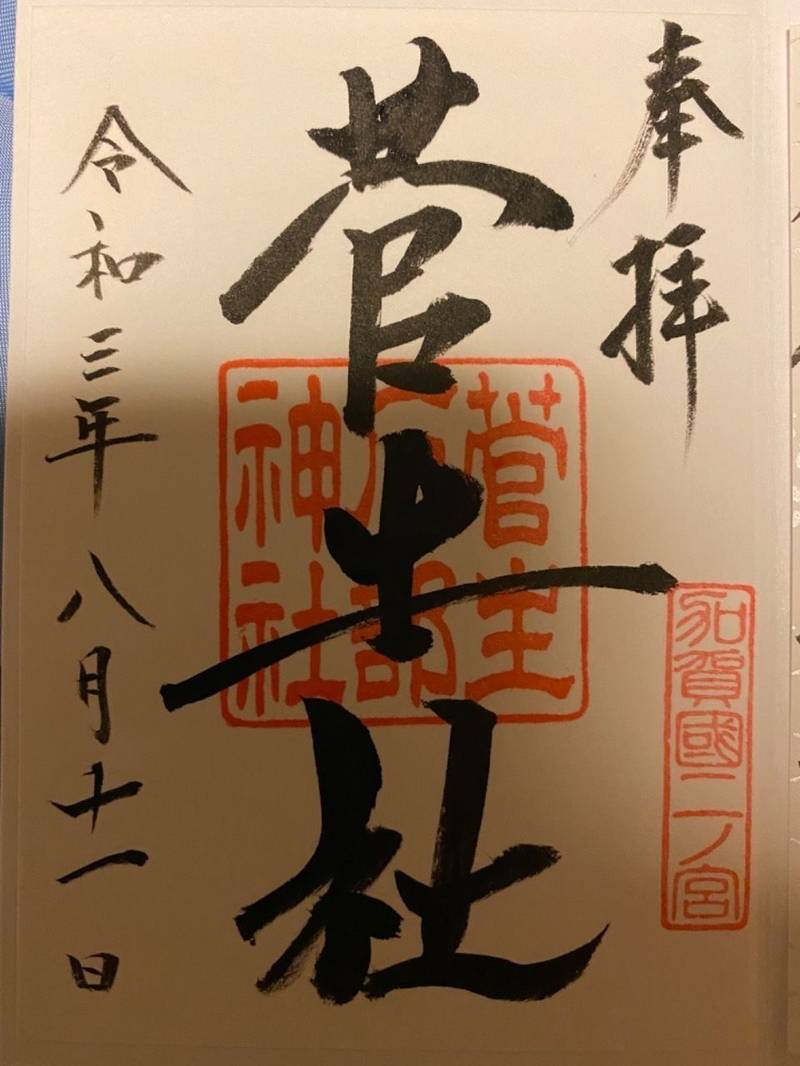 奉拝
加賀國二ノ宮
菅生社
菅生石部神社
令和三年八月十一日